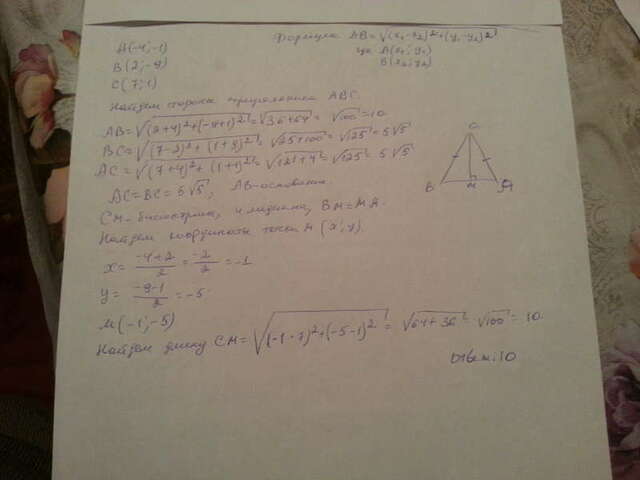 Формула AB=√(x₁-x₂)²+(y₁-y₂)²
A(-4;-1)
где A(x₁;y₁)
B(2;-9)
B(x₂;y₂)
C(7;1)
Найдем стороны треугольника ABC.
AB=√(2+4)²+(-9+1)²=√36+64=√100=10
BC=√(7-2)²+(1+9)²=√25+100=√125=5√5
AC=√(7+4)²+(1+1)²=√121+4=√125=5√5
AC=BC=5√5, AB-основание.
CM-биссектриса, и медиана, BM=MA.
Найдем координаты точки M(x;y).
x=-4+2/2=-2/2=-1
y=-9-1/2=-5
M(-1;-5)
Найдем длину CM=√(-1-7)²+(-5-1)²=√64+36=√100=10.
Ответ:10
C
B M A